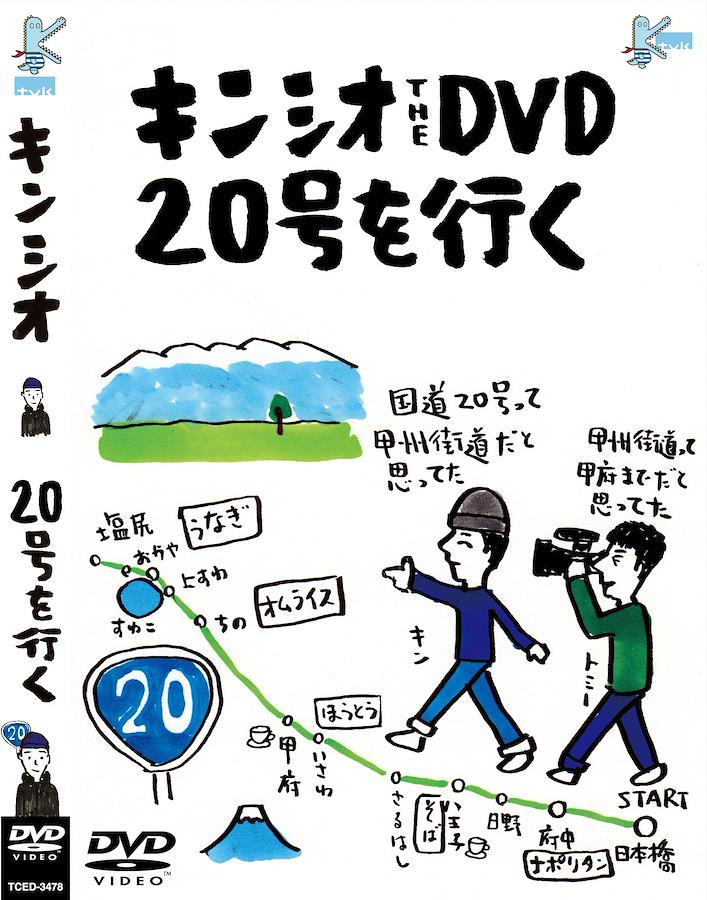 tvk
キンシオ
20号を行く
20
DVD
VIDEO
TCED-3478
tvk
キンシオ THE DVD
20号を行く
国道20号って
甲州街道だと
思ってた
甲州街道って
甲府までだと
思ってた
キン
トミー
塩尻
うなぎ
おかや
上すわ
すわこ
オムライス
ちの
20
ほうとう
甲府
いさわ
さるはし
そば
八王子
日野
府中
ナポリタン
START
日本橋
DVD
VIDEO™